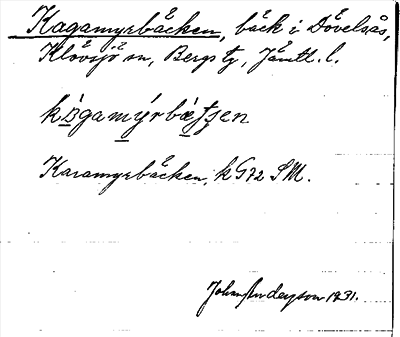 Kagamyrbäcken, bäck i Dövelsås,
Klövsjö sn, Bergs tg, Jämtl. l.
kɑ̀gamýrbætʃen
Karamyrbäcken, k G72 SM.
Johan Anderson 1931.